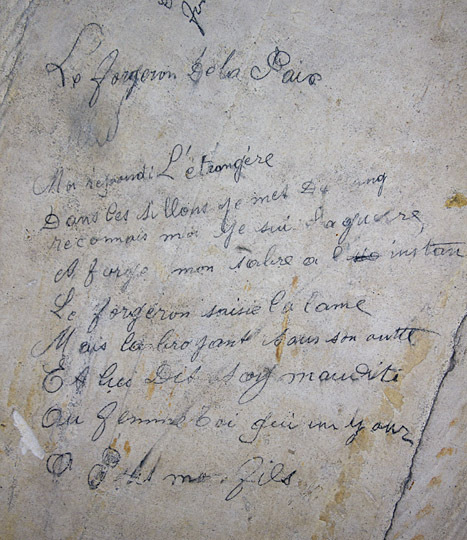 Le forgeron De la Paix
Moi repondi L'étrangére
Dans les sillons je met Du sang
reconnais moi Je sui la guerre,
forge mon sabre a l' instan
Le forgeron saisie la lame
Mais la broyant Dans son outte
Et lui Dit soy maudite
Ou femme toi qui un jour
mon fils